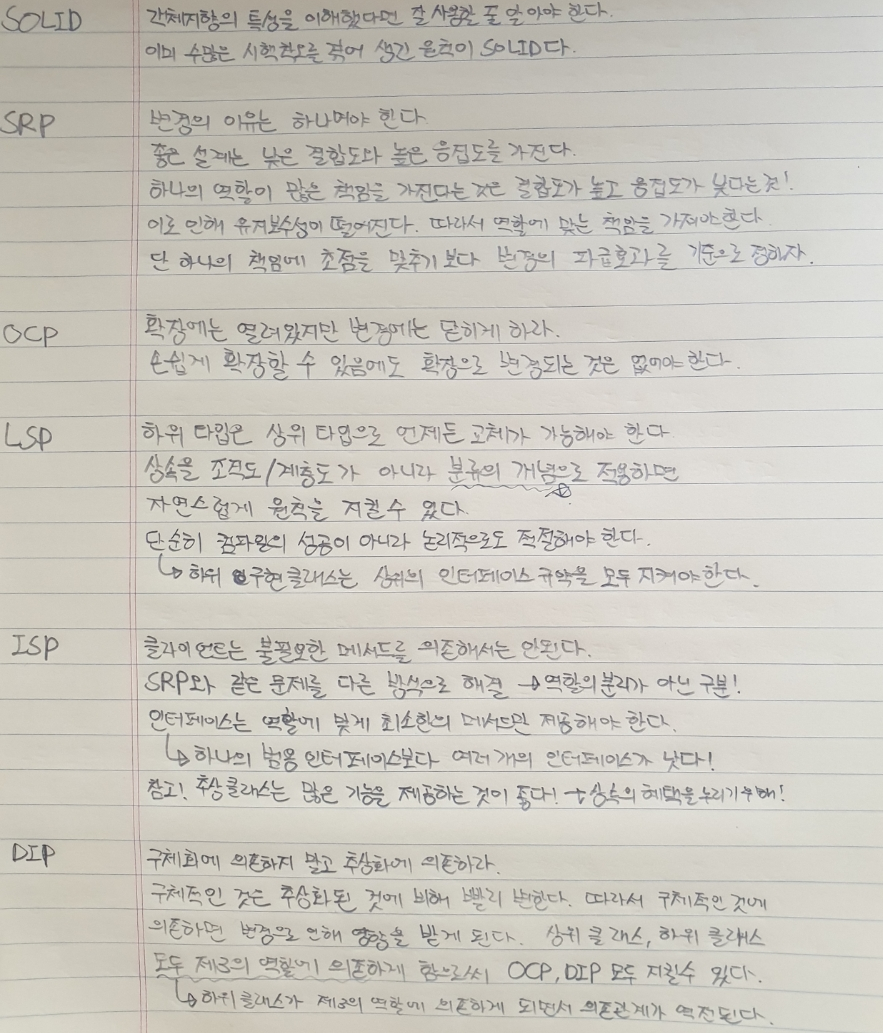 SOLID 객체지향의 특성을 이해했다면 잘 사용할 줄 알아야 한다.
이미 수많은 시행착오를 겪어 생긴 원칙이 SOLID다.
SRP 변경의 이유는 하나여야 한다.
좋은 설계는 낮은 결합도와 높은 응집도를 가진다.
하나의 역할이 많은 책임을 가진다는 것은 결합도가 높고 응집도가 낮다는 것!
이로 인해 유지보수성이 떨어진다. 따라서 역할에 맞는 책임을 가져야한다.
단 하나의 책임에 초점을 맞추기 보다 변경의 파급효과를 기준으로 정하자.
OCP 확장에는 열려있지만 변경에는 닫히게 하라.
손쉽게 확장할 수 있음에도 확장으로 변경되는 것은 없어야 한다.
LSP 하위 타입은 상위 타입으로 언제든 교체가 가능해야 한다
상속을 조직도/계층도가 아니라 분류의 개념으로 적용하면
자연스럽게 원칙을 지킬 수 있다.
단순히 컴파일의 성공이 아니라 논리적으로도 적절해야 한다.
↳ 하위 구현 클래스는 상위의 인터페이스 규약을 모두 지켜야 한다.
ISP 클라이언트는 불필요한 메서드를 의존해서는 안된다.
SRP와 같은 문제를 다른 방식으로 해결 → 역할의 분리가 아닌 구분!
인터페이스는 역할에 맞게 최소한의 메서드만 제공해야 한다.
↳ 하나의 범용 인터페이스보다 여러 개의 인터페이스가 낫다!
참고! 추상클래스는 많은 기능을 제공하는 것이 좋다! → 상속의 혜택을 누리기 위해!
DIP 구체화에 의존하지 말고 추상화에 의존하라.
구체적인 것은 추상화된 것에 비해 빨리 변한다. 따라서 구체적인 것에
의존하면 변경으로 인해 영향을 받게 된다. 상위 클래스, 하위 클래스
모두 제3의 역할에 의존하게 함으로써 OCP, DIP 모두 지킬수 있다.
↳ 하위클래스가 제3의 역할에 의존하게 되면서 의존관계가 역전된다.